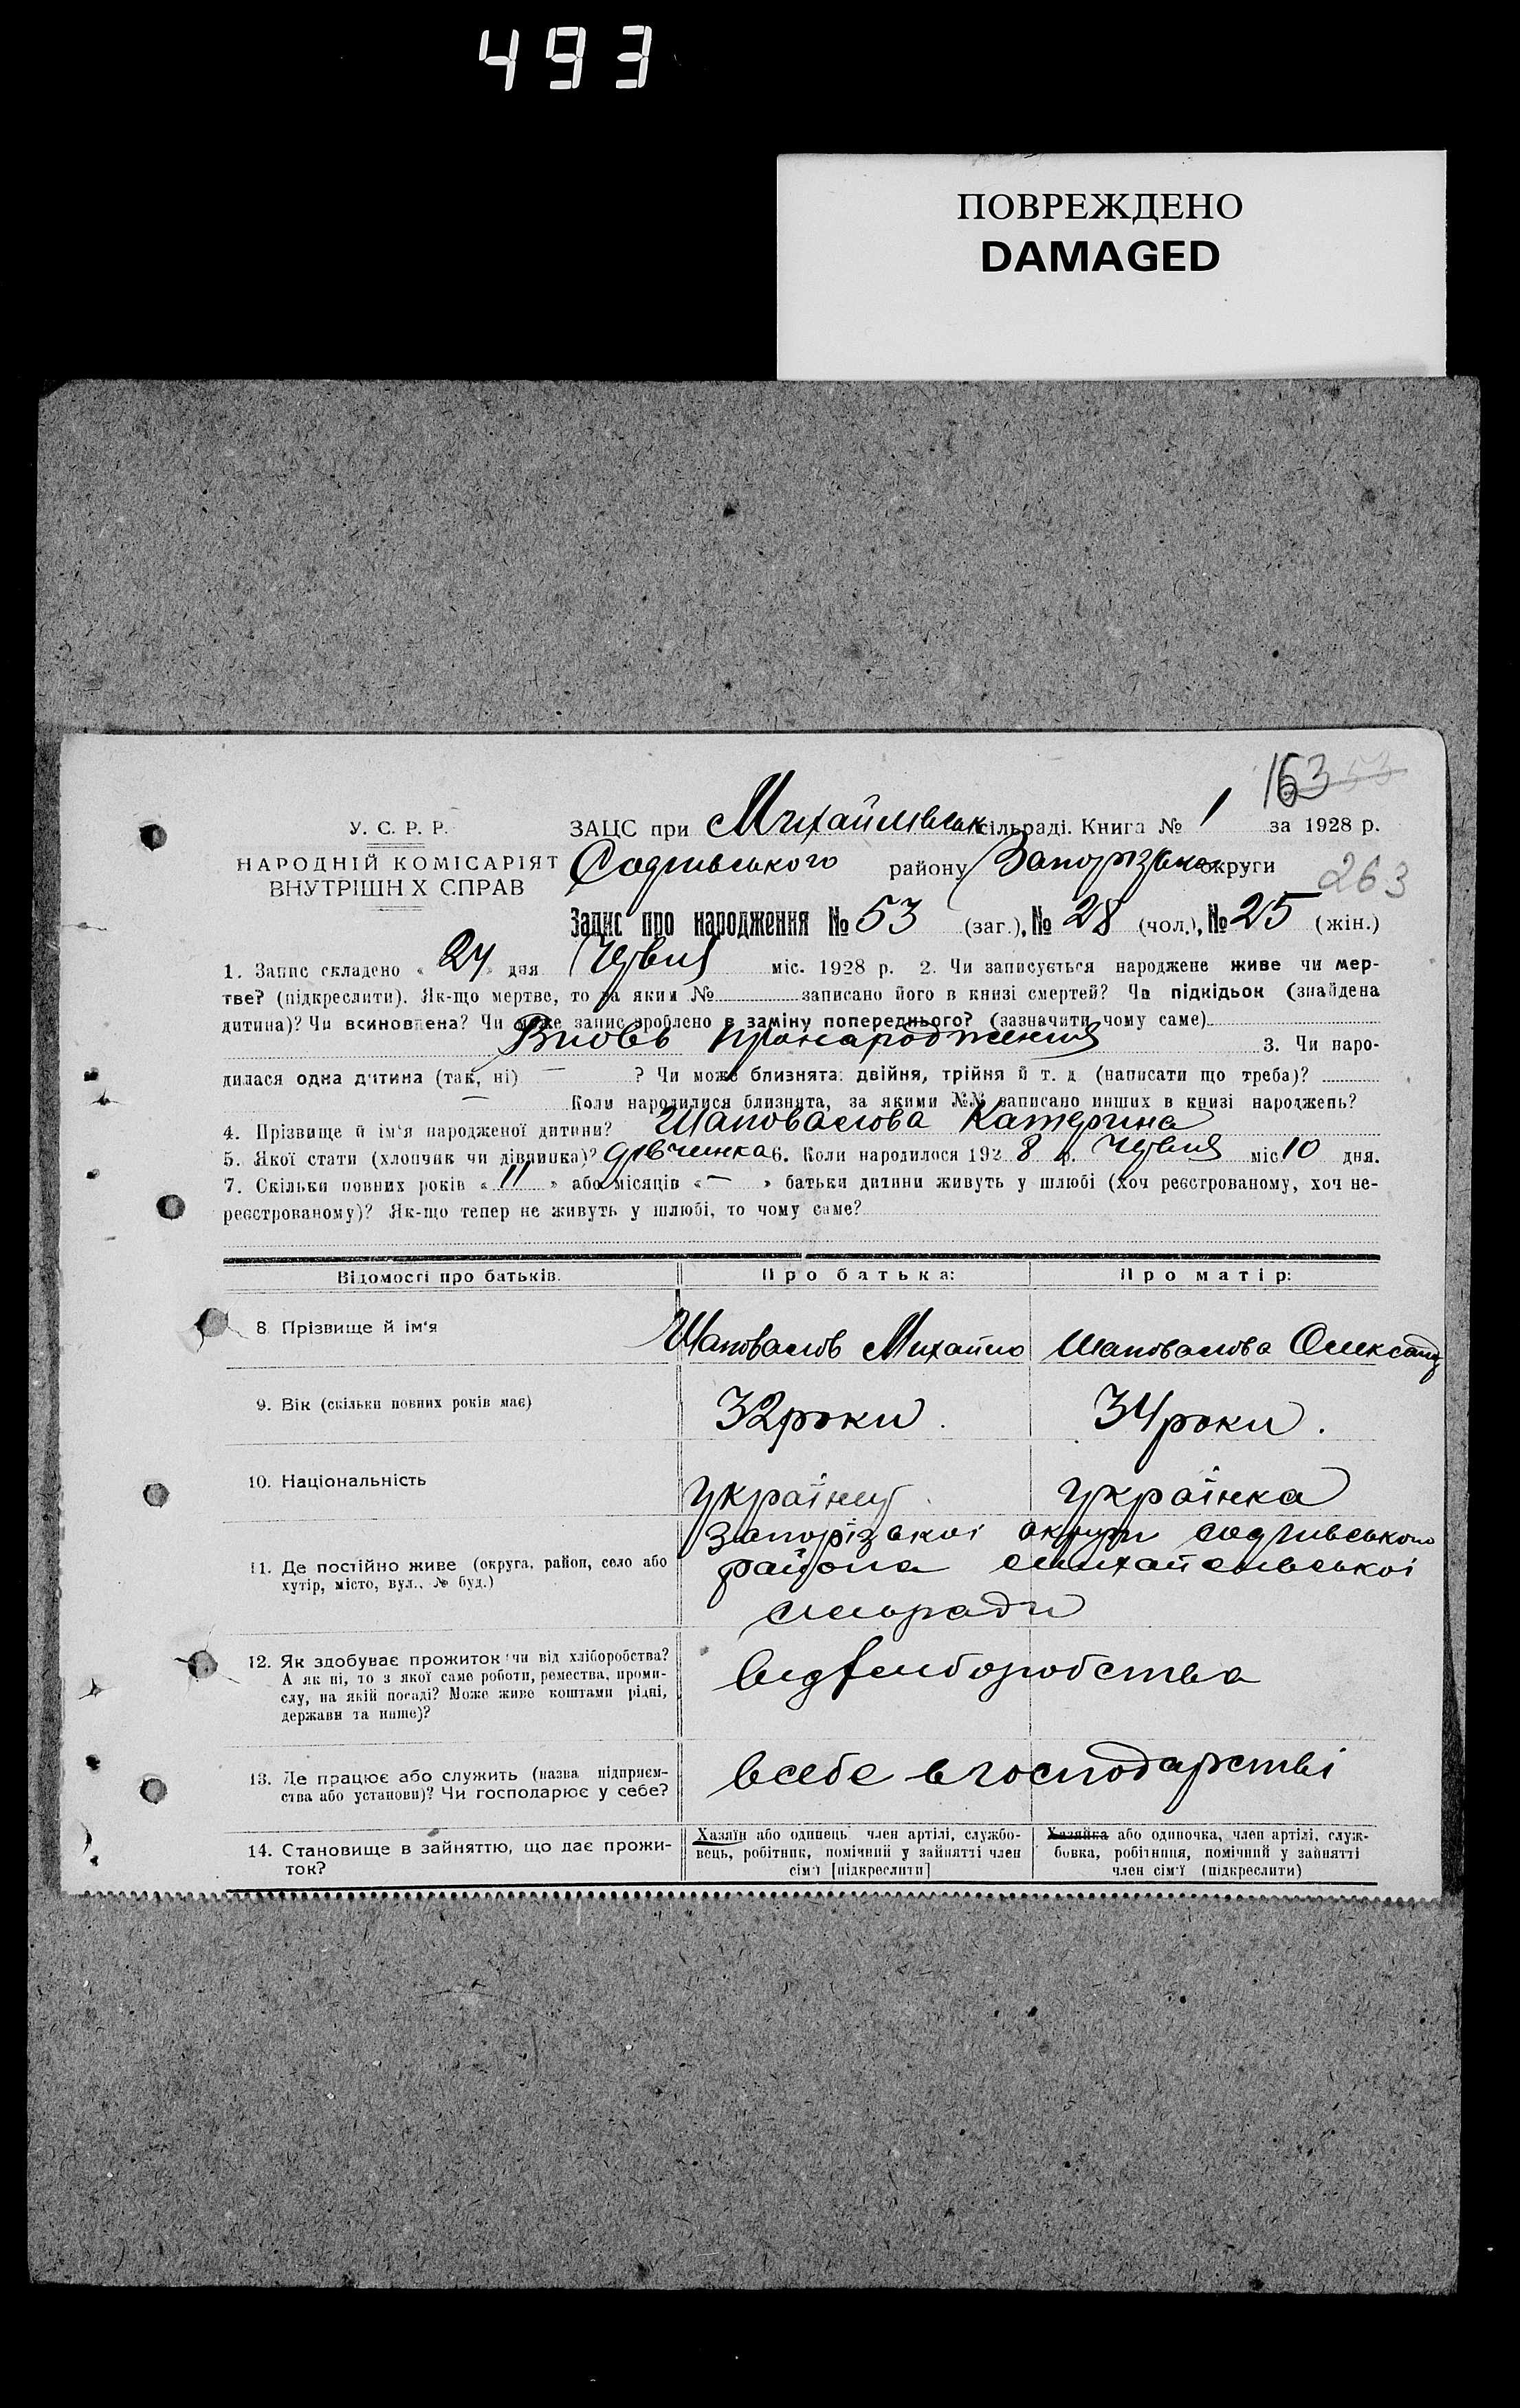 493
ПОВРЕЖДЕНО
DAMAGED
163 53
У. С. Р. Р.
НАРОДНІЙ КОМІСАРІЯТ
ВНУТРІШН Х СПРАВ
ЗАЦС при Михайлівськ сільраді. Книга № 1 за 1928 р.
району Запорізької округи
263
Запис про народження № 53 (заг.), № 28 (чол.), № 25 (жін.)
1. Запис складено « 24 » дня Червня міс. 1928 р. 2. Чи записується народжене живе чи мер-
тве? (підкреслити). Як-що мертве, то за яким № записано його в книзі смертей? Чи підкідьок (знайдена
дитина)? Чи всиновлена? Чи може запис зроблено в заміну попереднього? (зазначити чому саме)
Вновь пронародження 3. Чи наро-
дилася одна дитина (так, ні) — ? Чи може близнята: двійня, трійня й т. д. (написати що треба)?
— Коли народилися близнята, за якими №№ записано инших в книзі народжень?
4. Прізвище й ім'я народженої дитини? Шаповалова Катерина
5. Якої стати (хлопчик чи дівчинка)? Дівчинка 6. Коли народилося 192 8 р. Червня міс. 10 дня.
7. Скільки повних років « 11 » або місяців « — » батьки дитини живуть у шлюбі (хоч реєстрованому, хоч не-
реєстрованому)? Як-що тепер не живуть у шлюбі, то чому саме?
Відомості про батьків.
Про батька:
Про матір:
8. Прізвище й ім'я
Шаповалов Михайло
Шаповалова Олександ
9. Вік (скільки повних років має)
32 роки.
34 роки.
10. Національність
Українец
Українка
11. Де постійно живе (округа, район, село або
хутір, місто, вул., № буд.)
Запорізької округи
района Михайлівської
сільради
12. Як здобуває прожиток: чи від хліборобства?
А як ні, то з якої саме роботи, ремества, проми-
слу, на якій посаді? Може живе коштами рідні,
держави та инше)?
від хліборобства
13. Де працює або служить (назва підприєм-
ства або установи)? Чи господарює у себе?
в себе в господарстві
14. Становище в зайняттю, що дає прожи-
ток?
Хазяїн або одинець, член артілі, службо-
вець, робітник, помічний у зайнятті член
сім'ї [підкреслити]
Хазяйка або одиночка, член артілі, служ-
бовка, робітниця, помічний у зайнятті
член сім'ї (підкреслити)